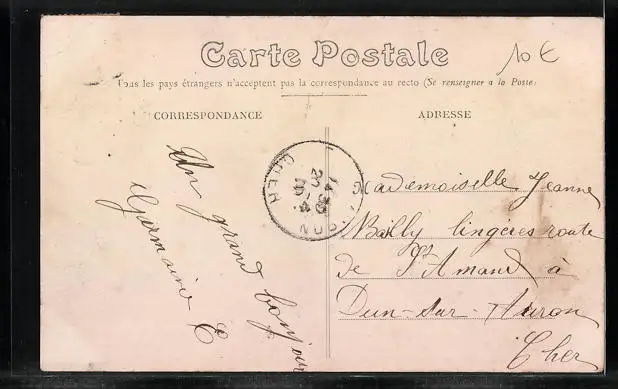 Carte Postale
10 €
Tous les pays étrangers n'acceptent pas la correspondance au recto (Se renseigner a la Poste)
CORRESPONDANCE
ADRESSE
Un grand bonjour
Germaine E
CHER
Mademoiselle Jeanne
Bailly lingères route
de St Amand à
Dun-sur-Auron
Cher